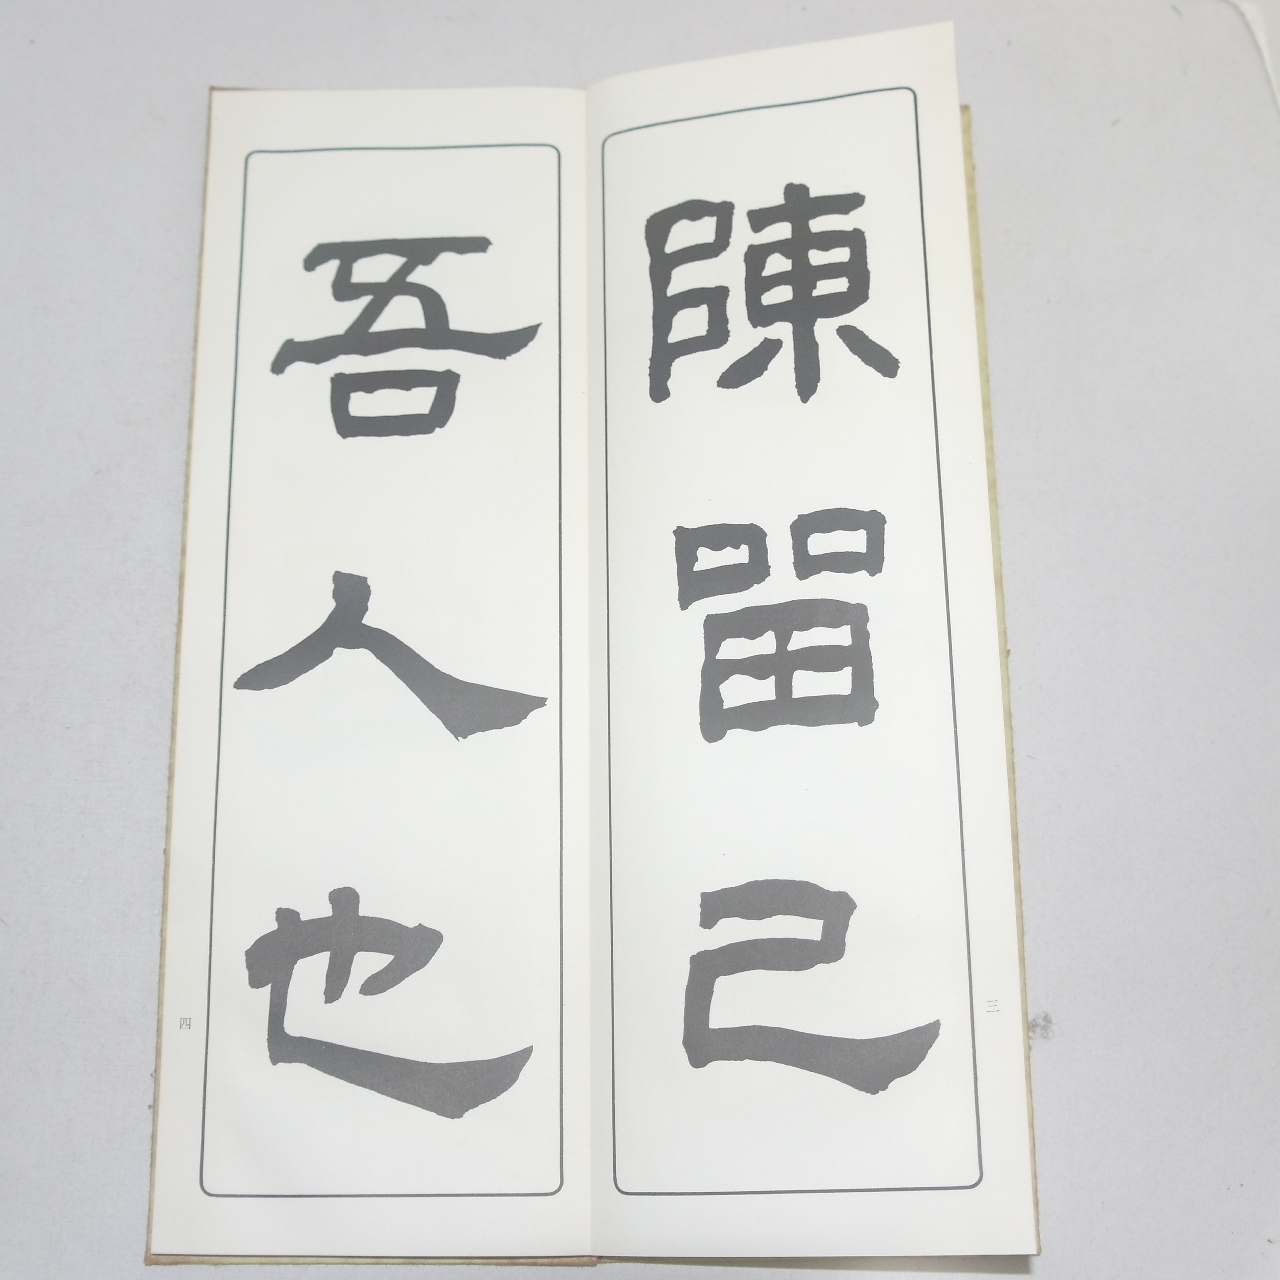 陳留己
三
吾人也
四